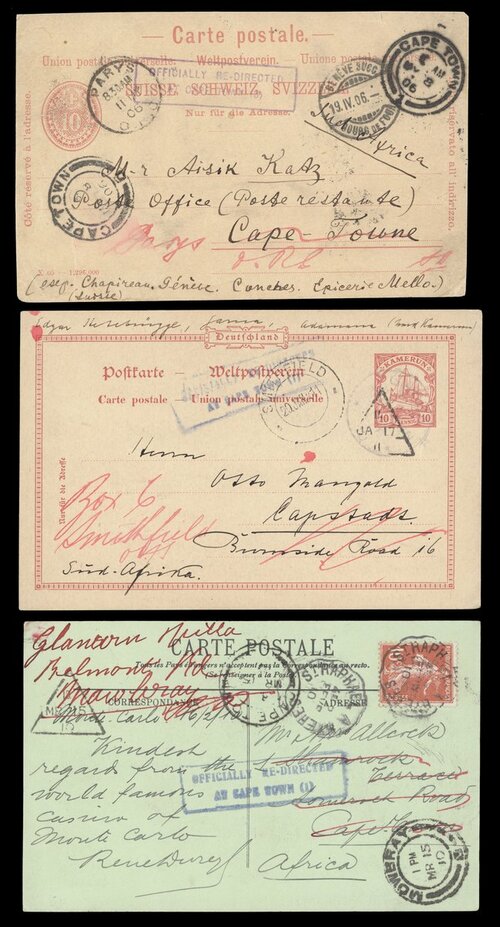 — Carte postale. —
Union postale universelle. Weltpostverein. Unione postale
SUISSE. SCHWEIZ. SVIZZERA
Nur für die Adresse.
Côte réservé à l'adresse.
riservato all'indirizzo.
10
PARYS
8 30 AM
11
06
OFFICIALLY RE-DIRECTED
GENÈVE SUCC.
19.IV.06.
CAPE TOWN
AM
8
06
Africa
CAPE TOWN
Mr Aisik Katz
Post Office (Poste restante)
Cape-Towne
Parys
(esep. Chapireau. Génève. Conches. Epicerie Mello.)
(Suisse)
Deutschland
Postkarte — Weltpostverein
Carte postale — Union postale universelle
Nur für die Adresse
AT CAPE TOWN
KAMERUN
10 10
JA 17
11
Herrn
Otto Mangold
Capstadt.
Burnside Road 16
Süd-Afrika.
Box 6
Smithfield
Glencairn Villa
Belmont Rd
Mowbray
CARTE POSTALE
Tous les Pays étrangers n'acceptent pas la Correspondance au recto.
(Se renseigner à la Poste)
CORRESPONDANCE
ADRESSE
Monte Carlo 16/2/10
Kindest
regard from the
world famous
Casino of
Monte Carlo
ST RAPHAEL
CAPE TOWN
OFFICIALLY RE-DIRECTED
AT CAPE TOWN (1)
Allcock
Terrace
Somerset Road
Cape Town
Africa
MOWBRAY
1 PM
MR 15
10